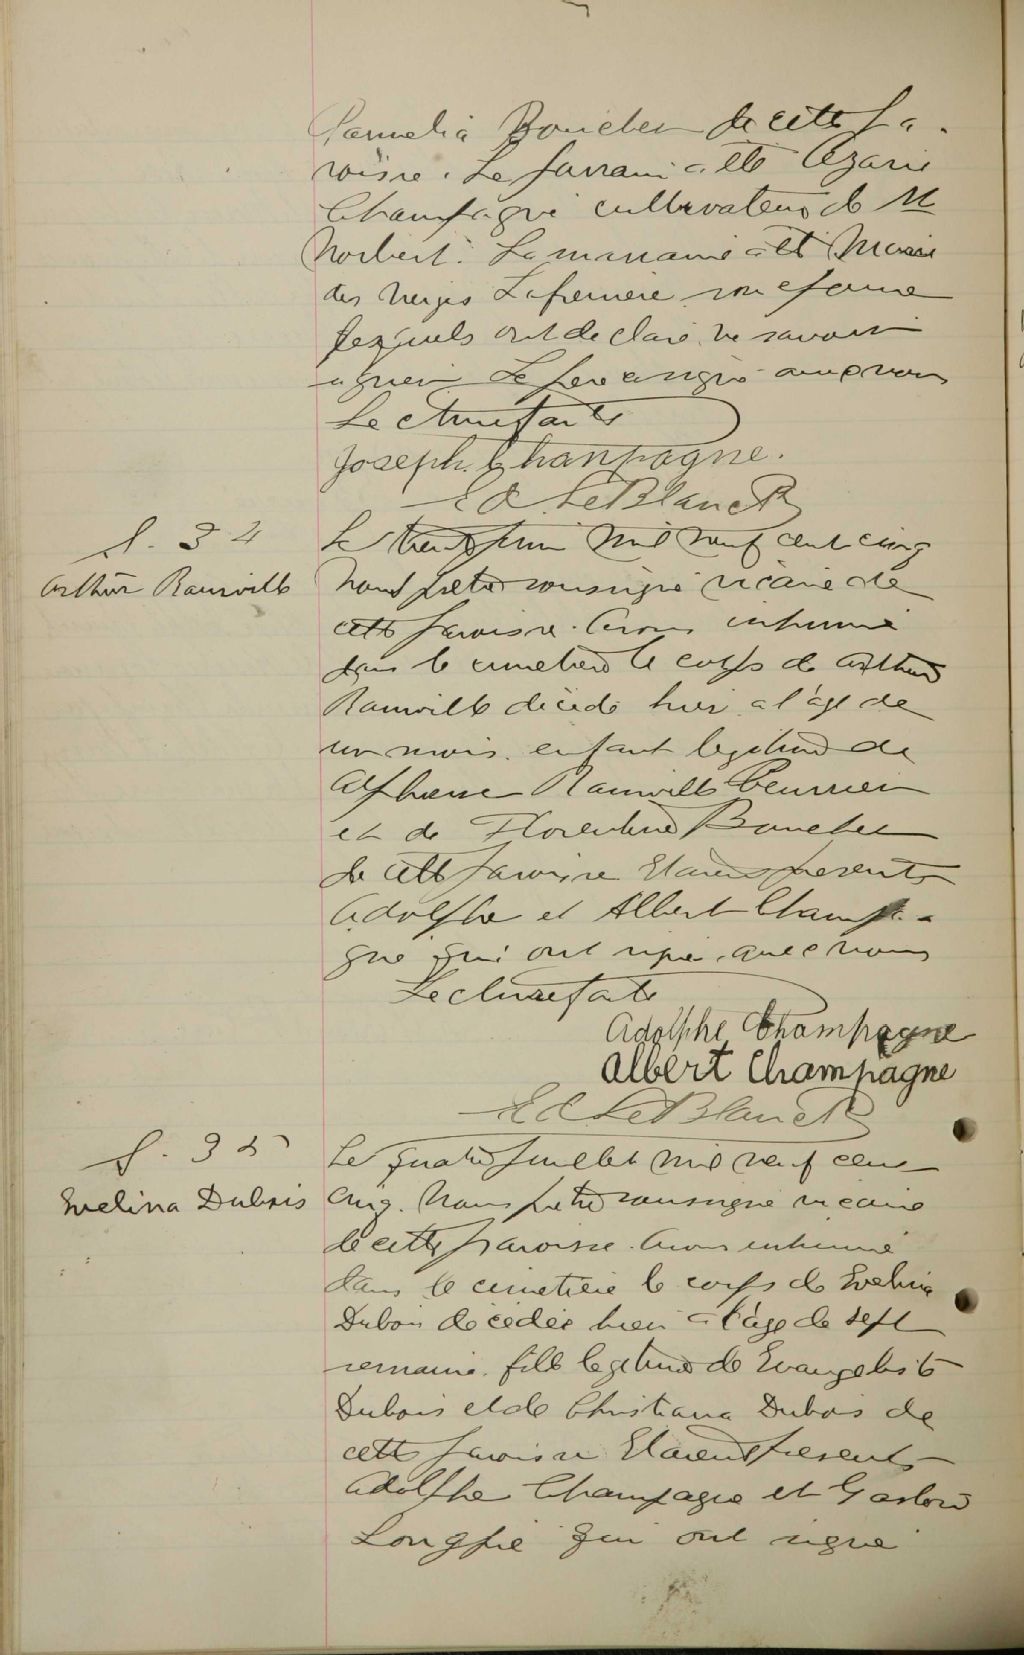 Parmelia Boucher de cette pa-
roisse. Le parrain a été Azarie
Champagne cultivateur de St
Norbert. La marraine a été Marie
des Neiges Laferrière son epouse
lesquels ont declaré ne savoir
signer. Le pere a signé avec nous
Lecture faite
Joseph Champagne.
Ed. LeBlanc
S. 34
Arthur Rainville
Le trente juin mil neuf cent cinq
Nous prêtre soussigné vicaire de
cette paroisse. Avons inhumé
dans le cimetière le corps de Arthur
Rainville décédé hier a l'âge de
un mois. enfant legitime de
Alphonse Rainville
et de Florentine Boucher
de cette paroisse Etaient presents
Adolphe et Albert Champa-
gne qui ont signé avec nous
Lecture faite
Adolphe Champagne
Albert Champagne
Ed LeBlanc
S. 35
Evelina Dubois
Le quatre juillet mil neuf cent
cinq. Nous prêtre soussigné vicaire
de cette paroisse. Avons inhumé
dans le cimetière le corps de Evelina
Dubois décédée hier a l'âge de sept
semaine. fille legitime de Evangeliste
Dubois et de Christiana Dubois de
cette paroisse Etaient presents
Adolphe Champagne et Gaston
Longpré qui ont signé